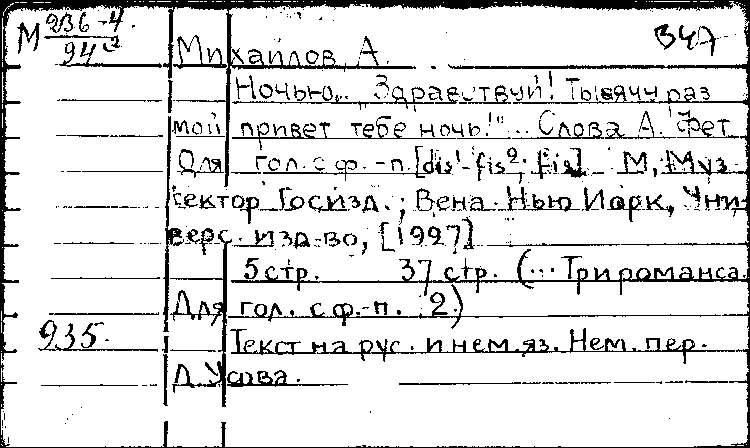 М 236-4
94
347
Михайлов, А.
Ночью... „Здравствуй! Тысячу раз
мой привет тебе ночь!"... Слова А. Фет
Для гол. с ф.-п. [dis¹-fis²; fis] М, Муз.
сектор Госизд.; Вена. Нью Иорк, Уни-
верс. изд-во, [1927]
5 стр. 37 стр. (... Три романса.
Для гол. с ф.-п. 2)
935.
Текст на рус. и нем. яз. Нем. пер.
Д. Усова.